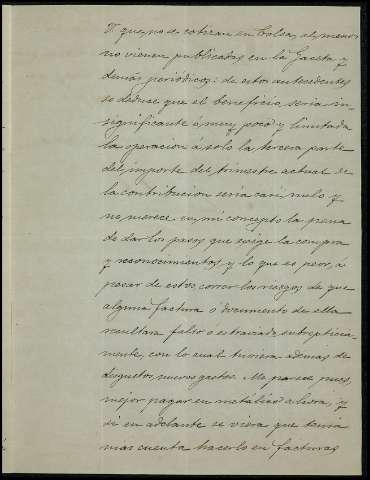 y que no se cotizan en bolsa, al menos
no vienen publicadas en la Gaceta y
demás periodicos: de estos antecedentes
se deduce que el beneficio sería in-
significante ó muy poco y limitada
la operacion á solo la tercera parte
del importe del trimestre actual de
la contribucion sería casi nulo y
no merece en mi concepto la pena
de dar los pasos que exige la compra
y reconocimientos y lo que es peor, á
pesar de estos correr los riesgos de que
alguna factura ó documento de ella
resultara falso ó estraviado subrepticia-
mente, con lo cual tuviera ademas de
disgustos, nuevos gastos. Me parece pues,
mejor pagar en metálico ahora, y
si en adelante se viera que tenia
mas cuenta hacerlo en facturas